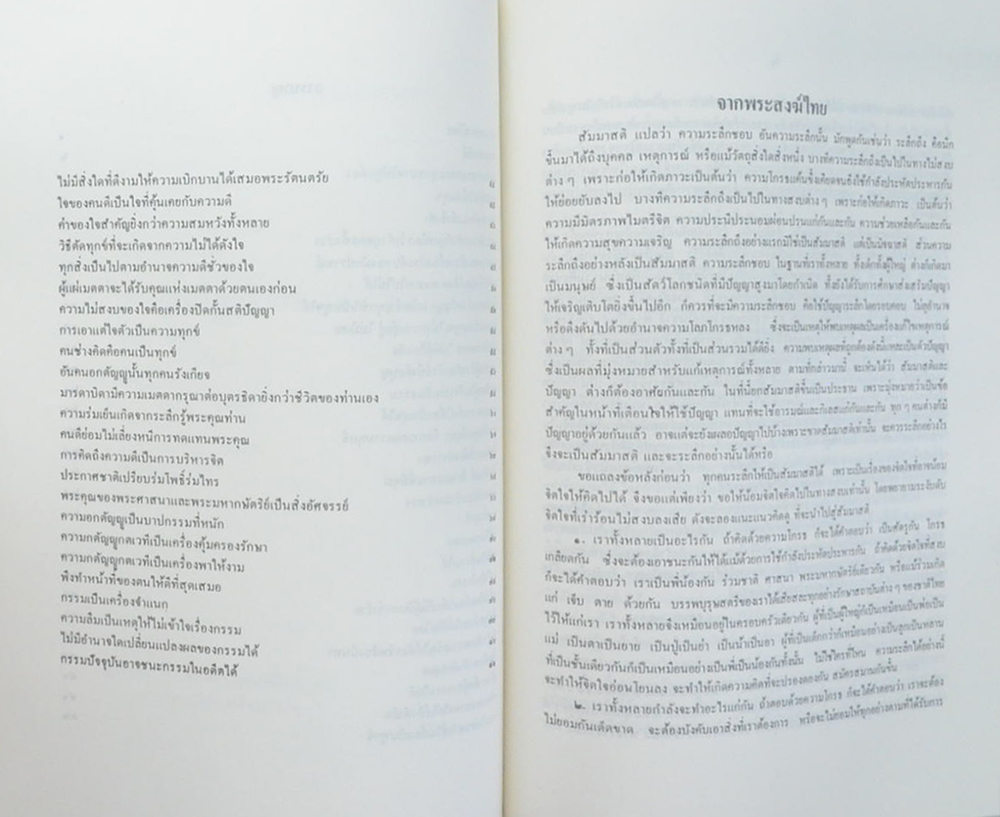 ไม่มีสิ่งใดที่ดีงามให้ความเบิกบานได้เสมอพระรัตนตรัย
ใจของคนดีเป็นใจที่คุ้นเคยกับความดี
ค่าของใจสำคัญยิ่งกว่าความสมหวังทั้งหลาย
วิธีตัดทุกข์ที่จะเกิดจากความไม่ได้ดังใจ
ทุกสิ่งเป็นไปตามอำนาจความดีชั่วของใจ
ผู้แผ่เมตตาจะได้รับคุณแห่งเมตตาด้วยตนเองก่อน
ความไม่สงบของใจคือเครื่องปิดกั้นสติปัญญา
การเอาแต่ใจตัวเป็นความทุกข์
คนช่างคิดคือคนเป็นทุกข์
อันคนอกตัญญูนั้นทุกคนรังเกียจ
มารดาบิดามีความเมตตากรุณาต่อบุตรธิดายิ่งกว่าชีวิตของท่านเอง
ความร่มเย็นเกิดจากระลึกรู้พระคุณท่าน
คนดีย่อมไม่เลี่ยงหนีการทดแทนพระคุณ
การคิดถึงความดีเป็นการบริหารจิต
ประกาศชาติเปรียบร่มโพธิ์ร่มไทร
พระคุณของพระศาสนาและพระมหากษัตริย์เป็นสิ่งอัศจรรย์
ความอกตัญญูเป็นบาปกรรมที่หนัก
ความกตัญญูกตเวทีเป็นเครื่องคุ้มครองรักษา
ความกตัญญูกตเวทีเป็นเครื่องพาให้งาม
พึงทำหน้าที่ของตนให้ดีที่สุดเสมอ
กรรมเป็นเครื่องจำแนก
ความลืมเป็นเหตุให้ไม่เข้าใจเรื่องกรรม
ไม่มีอำนาจใดเปลี่ยนแปลงผลของกรรมได้
กรรมปัจจุบันอาจชนะกรรมในอดีตได้
จากพระสงฆ์ไทย
สัมมาสติ แปลว่า ความระลึกชอบ อันความระลึกนั้น มักพูดกันเช่นว่า ระลึกถึง คือนึก
ขึ้นมาได้ถึงบุคคล เหตุการณ์ หรือแม้วัตถุสิ่งใดสิ่งหนึ่ง บางทีความระลึกถึงเป็นไปในทางไม่สงบ
ต่าง ๆ เพราะก่อให้เกิดภาวะ เป็นต้นว่า ความโกรธแค้นซึ่งเคียดจนถึงใช้กำลังประหัตประหารกัน
ให้ย่อยยับลงไป บางทีความระลึกถึงเป็นไปในทางสงบต่าง ๆ เพราะก่อให้เกิดภาวะ เป็นต้นว่า
ความมีมิตรภาพไมตรีจิต ความประนีประนอมผ่อนปรนแก่กันและกัน ความช่วยเหลือกันและกัน
ให้เกิดความสุขความเจริญ ความระลึกถึงอย่างแรกมิใช่เป็นสัมมาสติ แต่เป็นมิจฉาสติ ส่วนความ
ระลึกถึงอย่างหลังเป็นสัมมาสติ ความระลึกชอบ ในฐานะที่เราทั้งหลาย ทั้งเด็กทั้งผู้ใหญ่ ต่างก็เกิดมา
เป็นมนุษย์ ซึ่งเป็นสัตว์โลกชนิดที่มีปัญญาสูงมาโดยกำเนิด ทั้งยังได้รับการศึกษาส่งเสริมปัญญา
ให้เจริญเติบโตยิ่งขึ้นไปอีก ก็ควรที่จะมีความระลึกชอบ คือใช้ปัญญาระลึกโดยรอบคอบ ไม่วู่วาม
หรือดึงดันไปด้วยอำนาจความโลภโกรธหลง ซึ่งจะเป็นเหตุให้พบเหตุผลเป็นเครื่องแก้ไขเหตุการณ์
ต่าง ๆ ทั้งที่เป็นส่วนตัวทั้งที่เป็นส่วนรวมได้ดียิ่ง ความพบเหตุผลที่ถูกต้องดังนี้แหละเป็นตัวปัญญา
ซึ่งเป็นผลที่มุ่งหมายสำหรับแก้เหตุการณ์ทั้งหลาย ตามที่กล่าวมานี้ จะเห็นได้ว่า สัมมาสติและ
ปัญญา ต่างก็ต้องอาศัยกันและกัน ในที่นี้ยกสัมมาสติขึ้นเป็นประธาน เพราะมุ่งหมายว่าเป็นข้อ
สำคัญในหน้าที่เตือนใจให้ใช้ปัญญา แทนที่จะใช้อารมณ์และกิเลสแก่กันและกัน ทุก ๆ คนต่างก็มี
ปัญญาอยู่ด้วยกันแล้ว อาจแต่จะยังเผลอปัญญาไปบ้างเพราะขาดสัมมาสติเท่านั้น จะควรระลึกอย่างไร
จึงจะเป็นสัมมาสติ และจะระลึกอย่างนั้นได้หรือ
ขอแถลงข้อหลังก่อนว่า ทุกคนระลึกให้เป็นสัมมาสติได้ เพราะเป็นเรื่องของจิตใจที่อาจน้อม
จิตใจให้คิดไปได้ จึงขอแต่เพียงว่า ขอให้น้อมจิตใจคิดไปในทางสงบเท่านั้น โดยพยายามระงับดับ
จิตใจที่เร่าร้อนไม่สงบลงเสีย ดังจะลองแนะแนวคิดดู ที่จะนำไปสู่สัมมาสติ
๑. เราทั้งหลายเป็นอะไรกัน ถ้าคิดด้วยความโกรธ ก็จะได้คำตอบว่า เป็นศัตรูกัน โกรธ
เกลียดกัน ซึ่งจะต้องเอาชนะกันให้ได้แม้ด้วยการใช้กำลังประหัตประหารกัน ถ้าคิดด้วยจิตใจที่สงบ
ก็จะได้คำตอบว่า เราเป็นพี่น้องกัน ร่วมชาติ ศาสนา พระมหากษัตริย์เดียวกัน หรือแม้ร่วมเกิด
แก่ เจ็บ ตาย ด้วยกัน บรรพบุรุษสตรีของเราได้เสียสละทุกอย่างรักษาสถาบันต่าง ๆ ของชาติไทย
ไว้ให้แก่เรา เราทั้งหลายจึงเหมือนอยู่ในครอบครัวเดียวกัน ผู้ที่เป็นผู้ใหญ่ก็เป็นเหมือนเป็นพ่อเป็น
แม่ เป็นตาเป็นยาย เป็นปู่เป็นย่า เป็นน้าเป็นอา ผู้ที่เป็นเด็กกว่าก็เหมือนอย่างเป็นลูกเป็นหลาน
ที่เป็นชั้นเดียวกันก็เป็นเหมือนอย่างเป็นพี่เป็นน้องกันทั้งนั้น ไม่ใช่ใครที่ไหน ความระลึกได้อย่างนี้
จะทำให้จิตใจอ่อนโยนลง จะทำให้เกิดความคิดที่จะปรองดองกัน สมัครสมานกันขึ้น
๒. เราทั้งหลายกำลังจะทำอะไรแก่กัน ถ้าตอบด้วยความโกรธ ก็จะได้คำตอบว่า เราจะต้อง
ไม่ยอมกันเด็ดขาด จะต้องบังคับเอาสิ่งที่เราต้องการ หรือจะไม่ยอมให้ทุกอย่างตามที่ได้รับการ